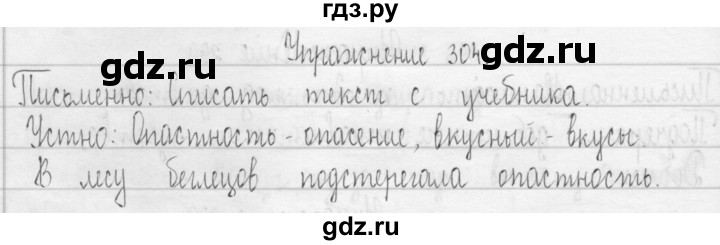 гдз.ру
Упражнение 304
gdz.ru gdz.ru
Письменно: Списать текст с учебника.
Устно: Опастность - опасение, вкусный - вкусы.
В лесу беглецов подстерегала опастность.
gdz.ru gdz.ru